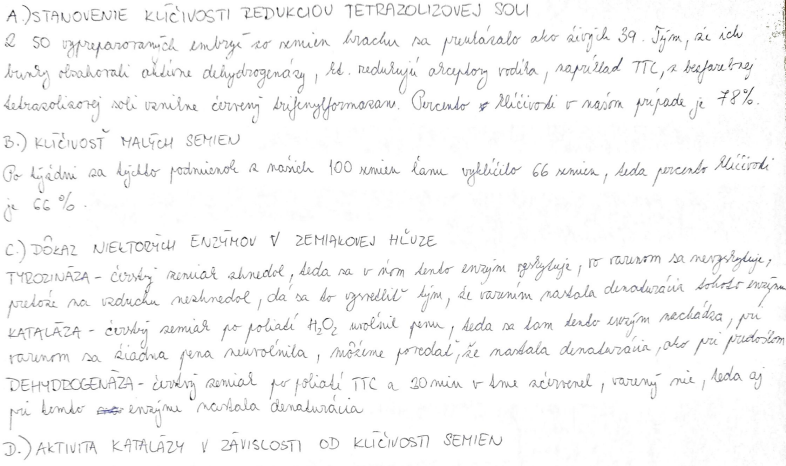 A.) STANOVENIE KLÍČIVOSTI REDUKCIOU TETRAZOLIZOVEJ SOLI
Z 50 vypreparovaných embryí zo semien hrachu sa preukázalo ako živých 39. Tým, že ich
bunky obsahovali aktívne dehydrogenázy, kt. redukujú akceptory vodíka, napríklad TTC, z bezfarebnej
tetrazolizovej soli vznikne červený trifenylformazan. Percento klíčivosti v našom prípade je 78%.
B.) KLÍČIVOSŤ MALÝCH SEMIEN
Po týždni za týchto podmienok z našich 100 semien ľanu vyklíčilo 66 semien, teda percento klíčivosti
je 66 %.
C.) DÔKAZ NIEKTORÝCH ENZÝMOV V ZEMIAKOVEJ HĽUZE
TYROZINÁZA - čerstvý zemiak zhnedol, teda sa v ňom tento enzým vyskytuje, vo varenom sa nevyskytuje,
pretože na vzduchu nezhnedol, dá sa to vysvetliť tým, že varením nastala denaturácia tohoto enzýmu
KATALÁZA - čerstvý zemiak po poliatí H2O2 uvolnil penu, teda sa tam tento enzým nachádza, pri
varenom sa žiadna pena neuvolnila, môžeme povedať, že nastala denaturácia, ako pri predošlom
DEHYDROGENÁZA - čerstvý zemiak po poliatí TTC a 30 min v tme sčervenel, varený nie, teda aj
pri tomto enzýme nastala denaturácia
D.) AKTIVITA KATALÁZY V ZÁVISLOSTI OD KLÍČIVOSTI SEMIEN